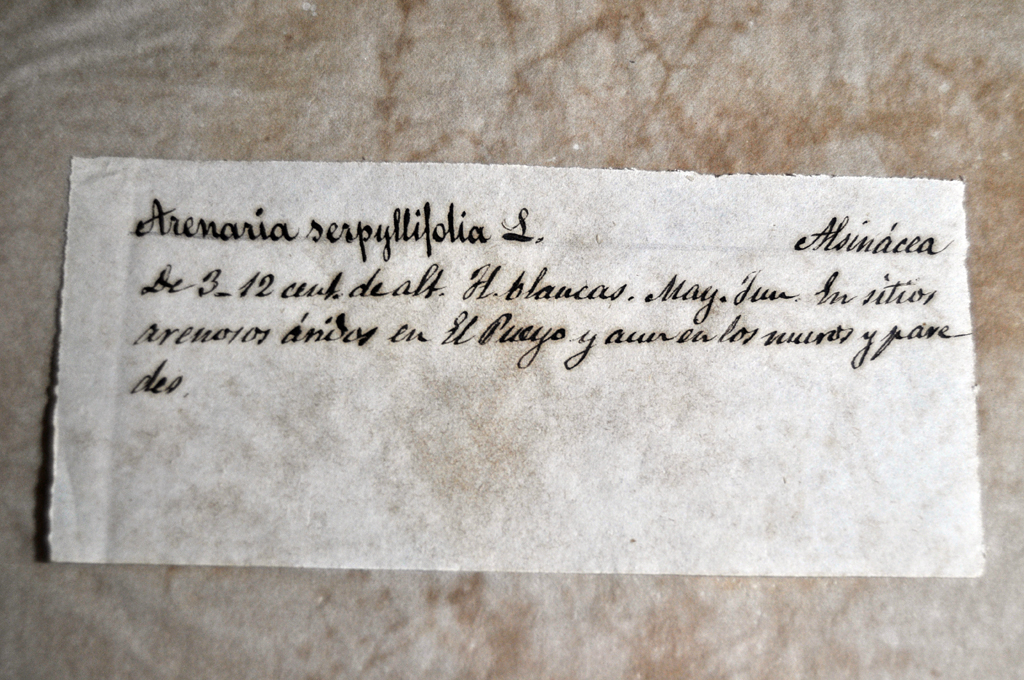 Arenaria serpyllifolia L. Alsinácea
De 3-12 cent. de alt. Fl. blancas. May. Jun. En sitios
arenosos áridos en El Pueyo y aun en los muros y pare
des.